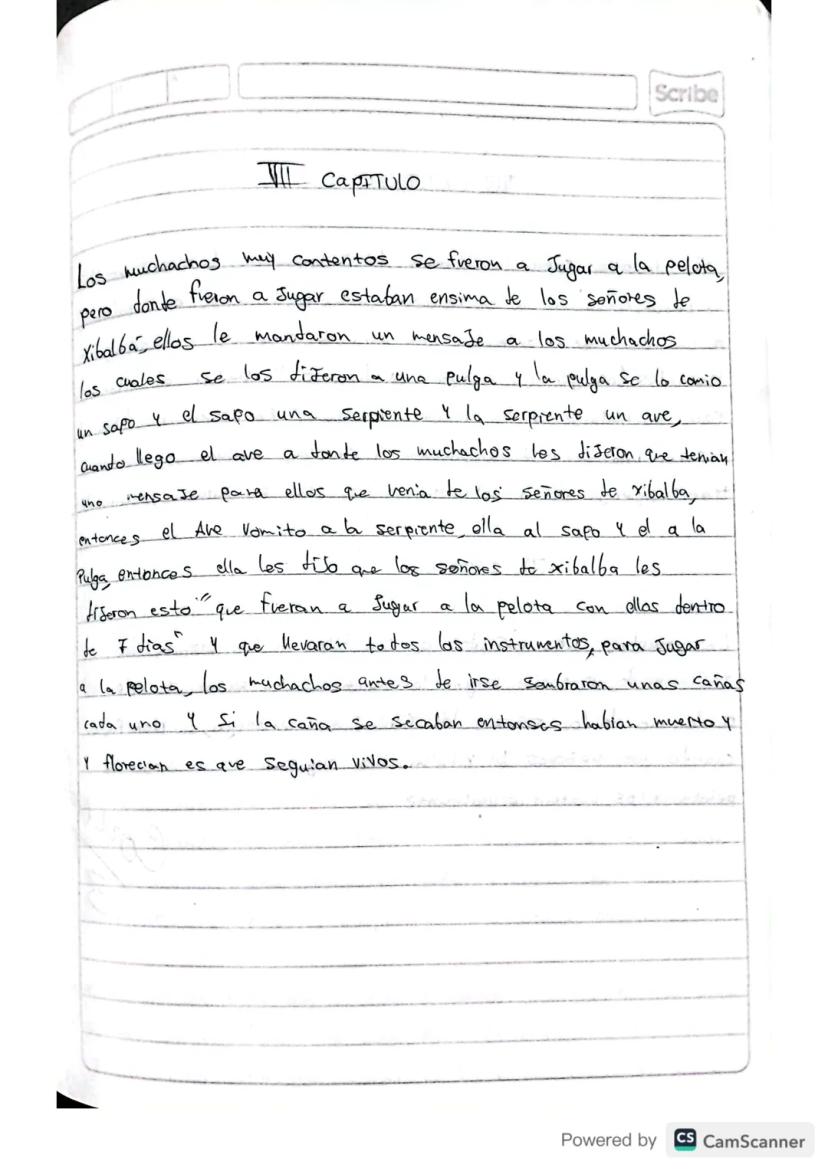 Scribe
VII CapITULO
Los muchachos muy contentos se fueron a Jugar a la pelota,
pero donde fueron a Jugar estaban ensima de los señores de
Xibalbá, ellos le mandaron un mensaje a los muchachos
los cuales se los dijeron a una pulga y la pulga se lo comio
un sapo y el sapo una serpiente y la serpiente un ave,
cuando llego el ave a donde los muchachos les dijeron que tenian
uno mensaje para ellos que venia de los señores de xibalba,
entonces el Ave vomito a la serpiente, ella al sapo y el a la
Pulga, entonces ella les dijo que los señores de xibalba les
dijeron esto "que fueran a Jugar a la pelota con ellos dentro
de 7 dias" y que llevaran todos los instrumentos, para Jugar
a la pelota, los muchachos antes de irse sembraron unas cañas
cada uno y si la caña se secaban entonses habian muerto y
y florecian es que seguian vivos.
Powered by CS CamScanner